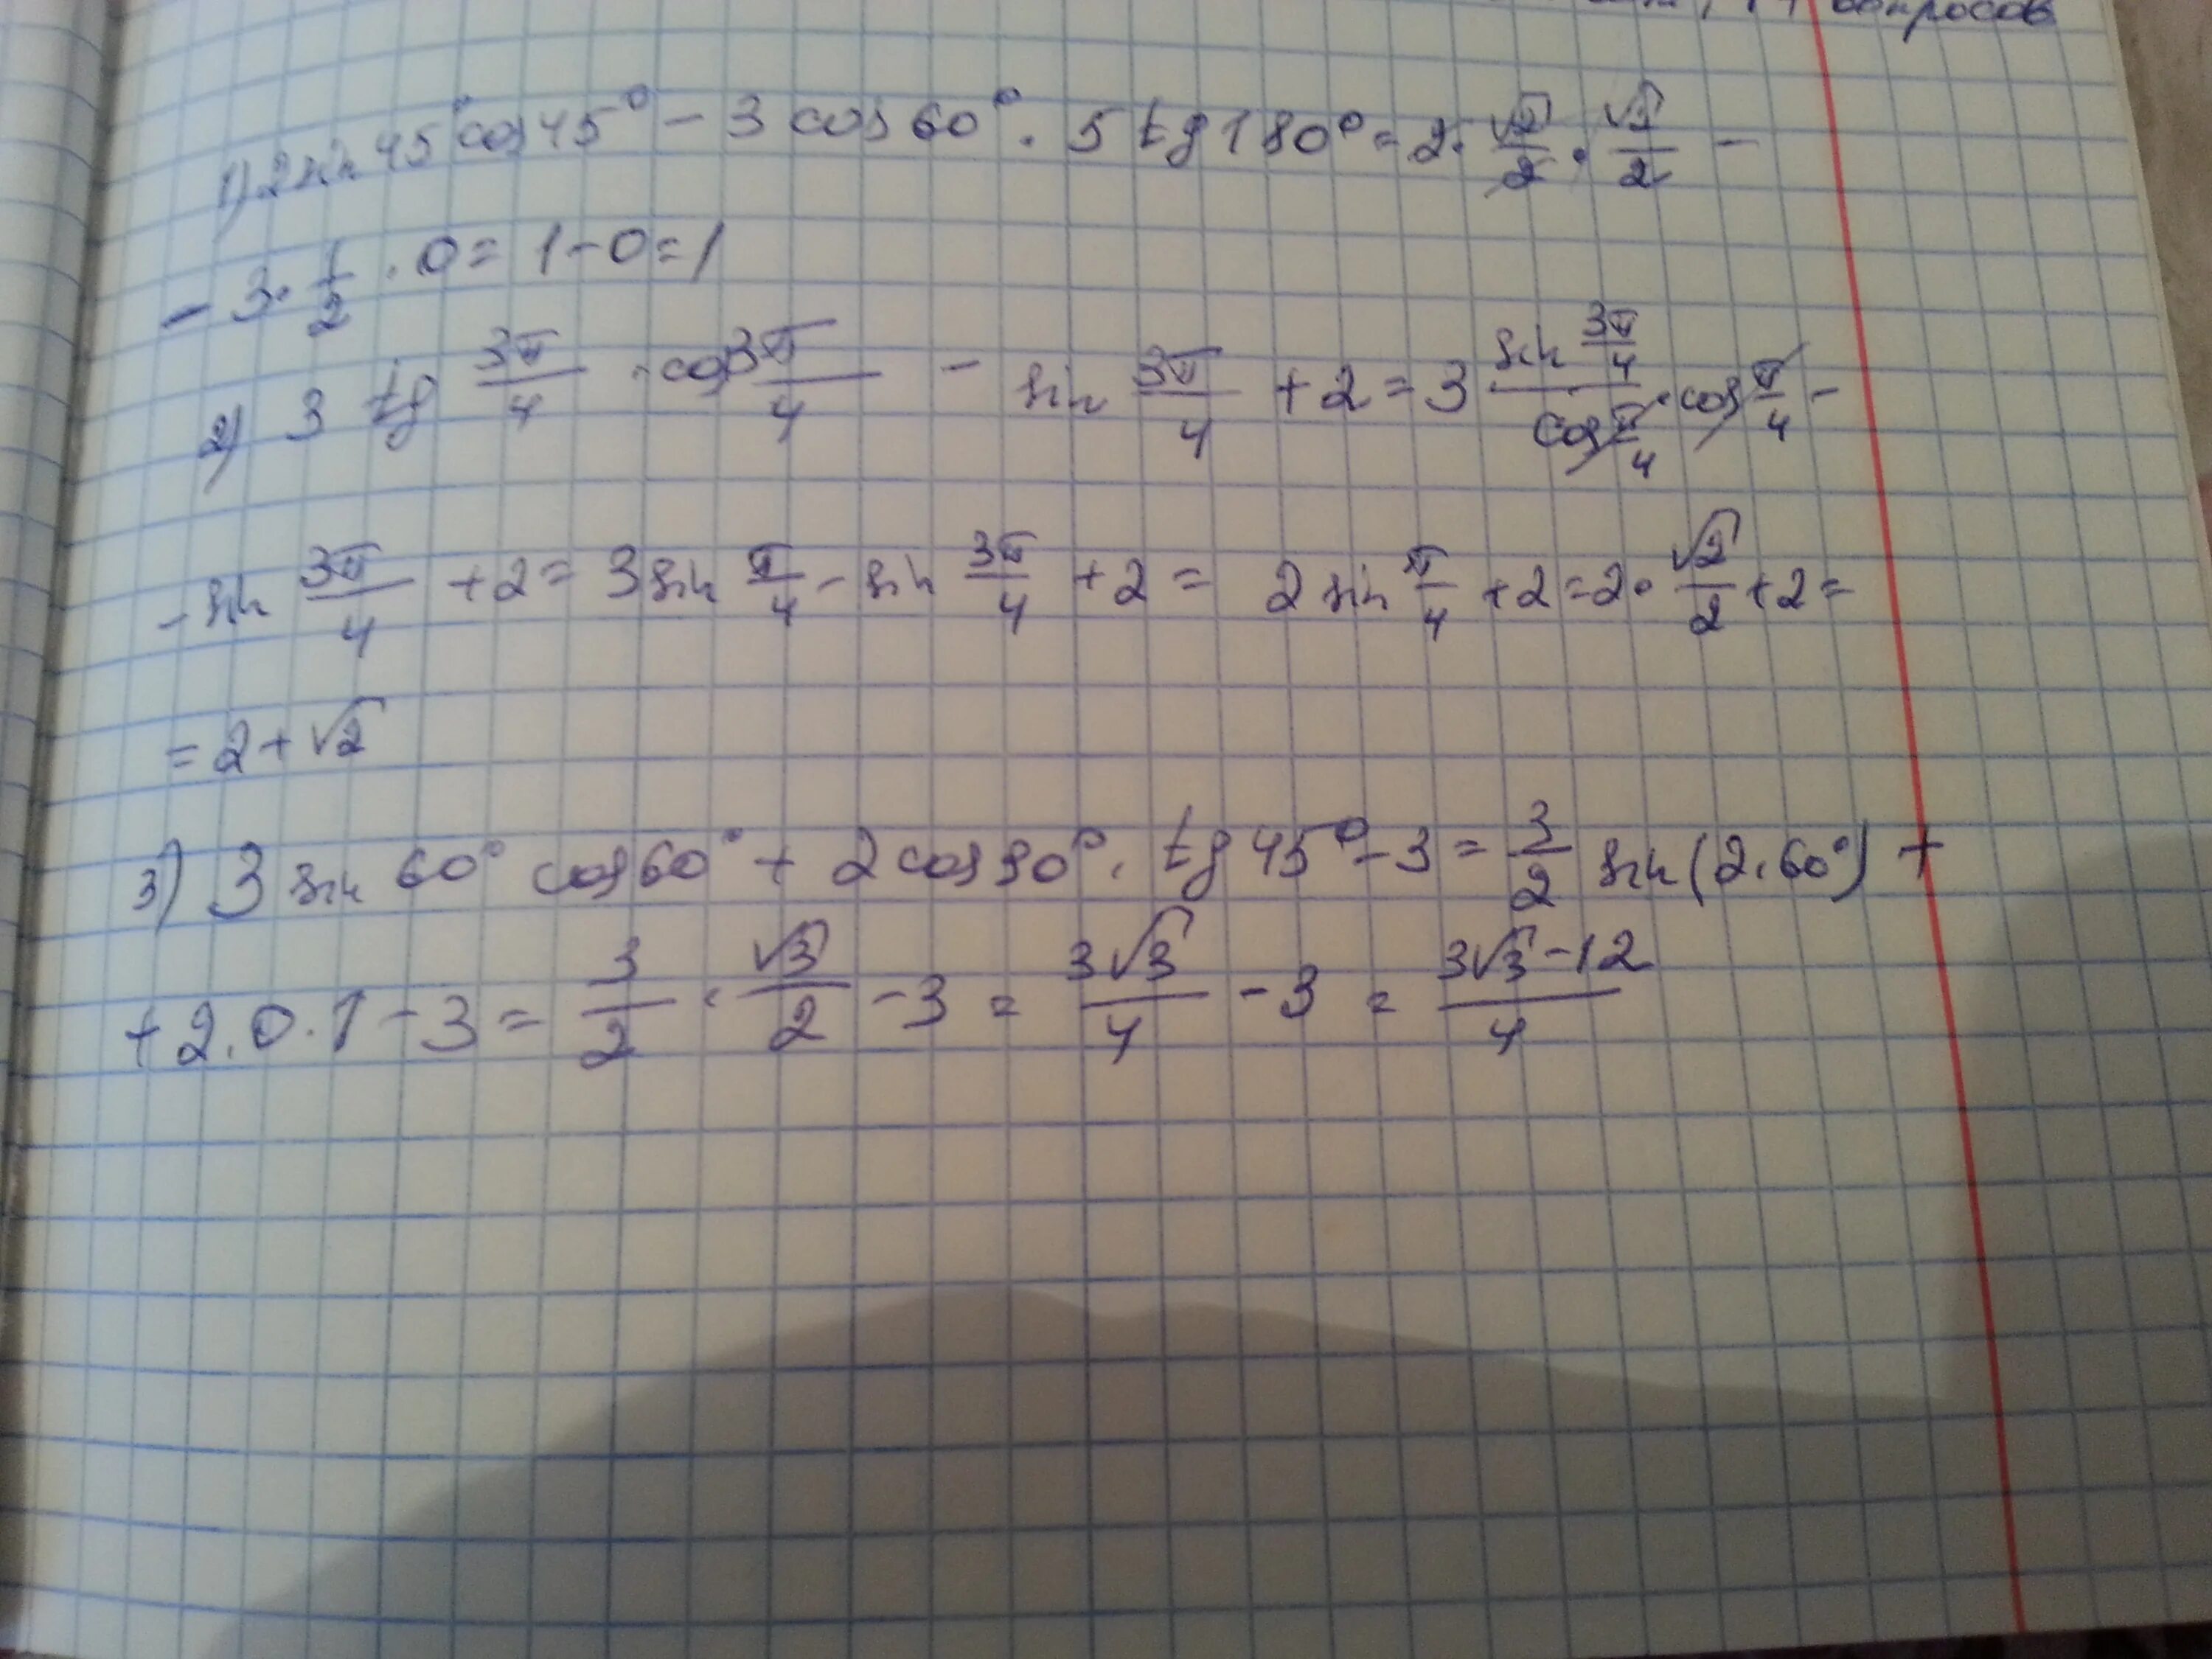 вопросов
1) 2 sin 45° cos 45° - 3 cos 60° · 5 tg 180° = 2 · √2/2 · √2/2 -
- 3 · 1/2 · 0 = 1 - 0 = 1
2) 3 tg 3π/4 · cos 3π/4 - sin 3π/4 + 2 = 3 sin 3π/4 / cos π/4 · cos π/4 -
- sin 3π/4 + 2 = 3 sin π/4 - sin 3π/4 + 2 = 2 sin π/4 + 2 = 2 · √2/2 + 2 =
= 2 + √2
3) 3 sin 60° cos 60° + 2 cos 90° · tg 45° - 3 = 3/2 sin (2 · 60°) +
+ 2 · 0 · 1 - 3 = 3/2 · √3/2 - 3 = 3√3/4 - 3 = 3√3 - 12/4